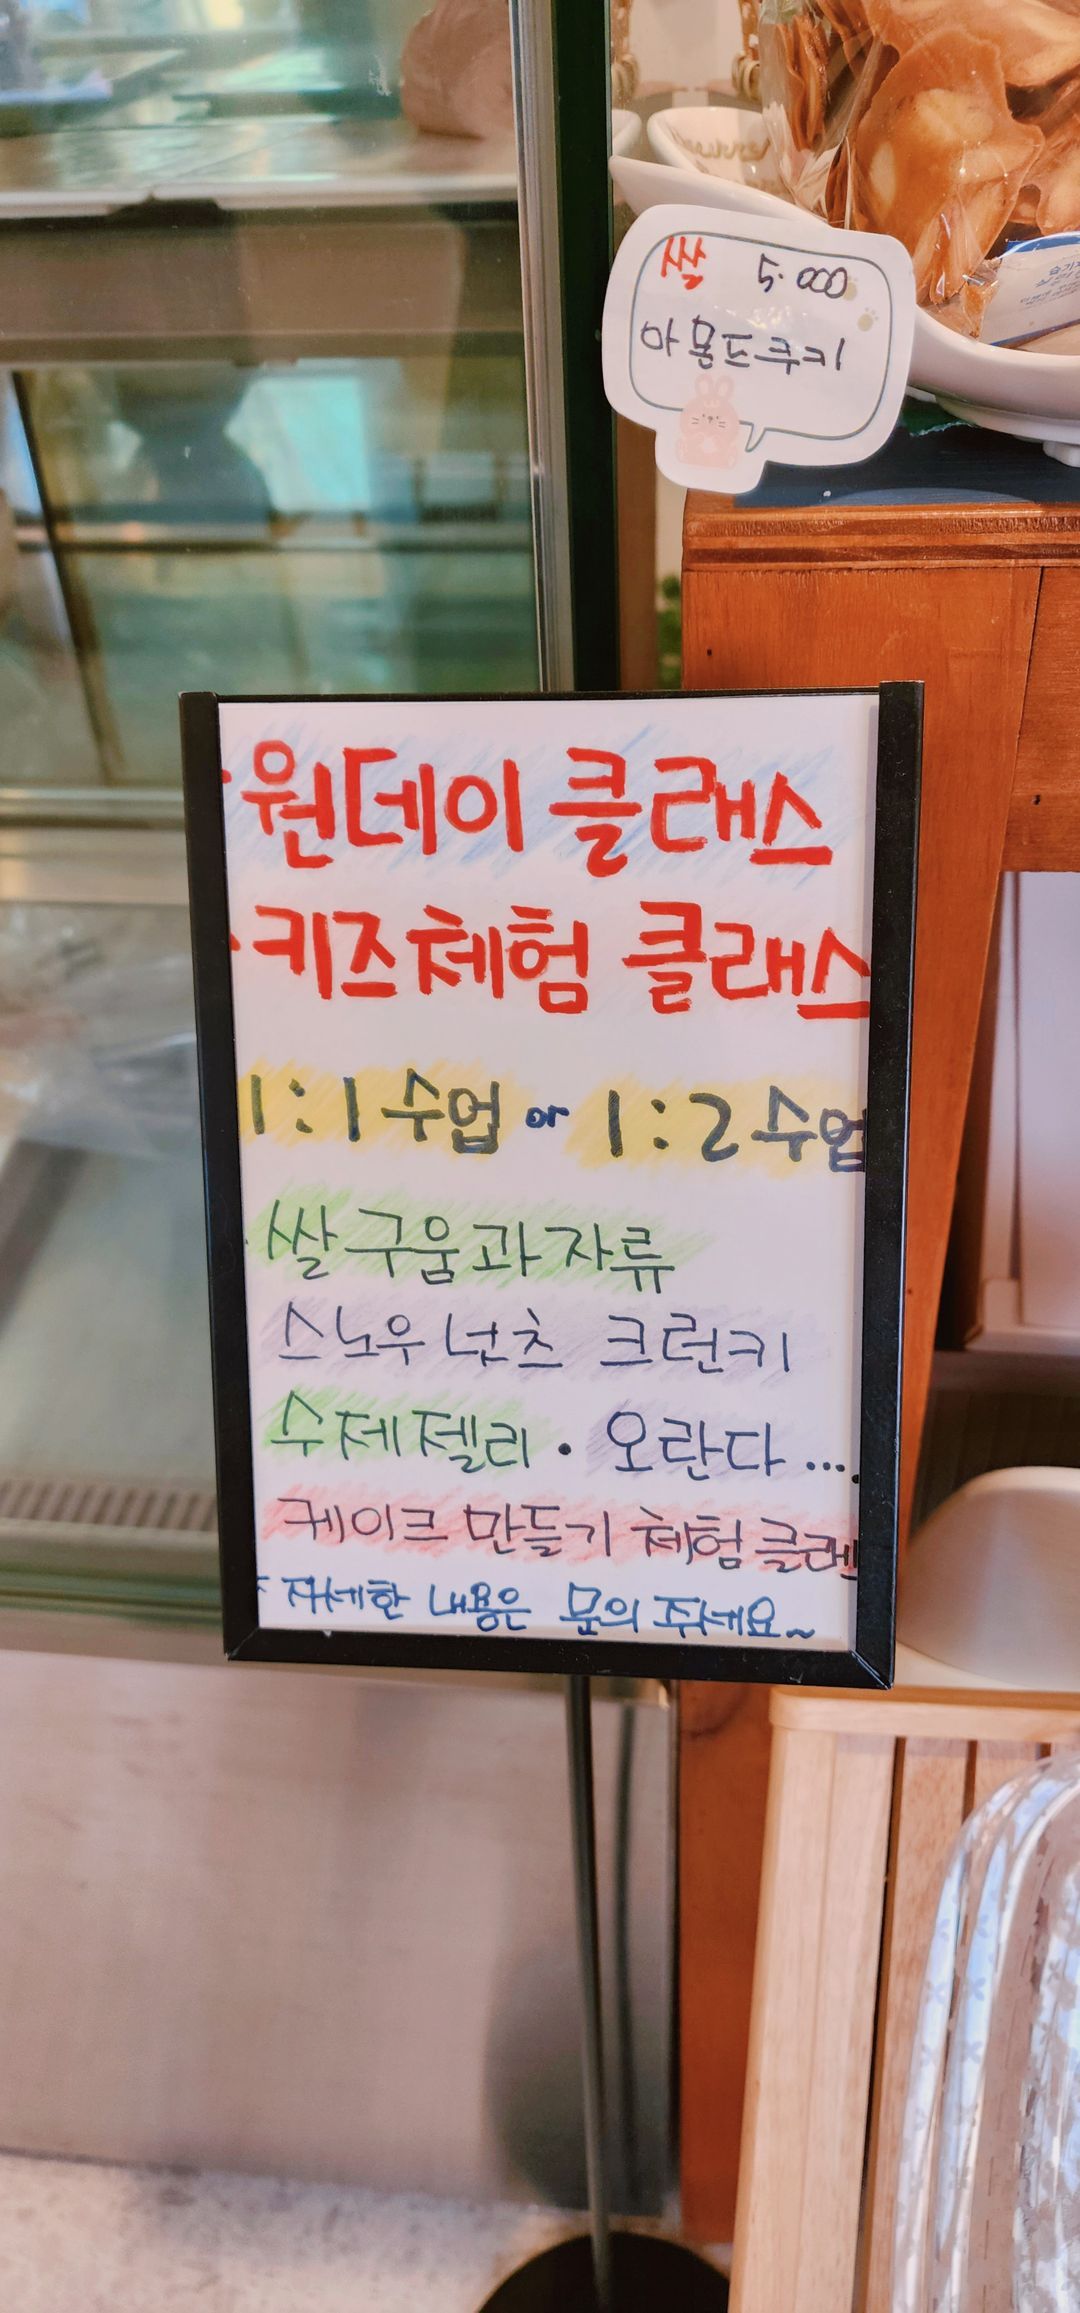 쌀 5.000
아몬드쿠키
·원데이 클래스
·키즈체험 클래스
1:1 수업 or 1:2 수업
쌀구움과자류
스노우 넌츠 크런키
수제젤리 · 오란다 ....
케이크 만들기 체험 클래
* 자세한 내용은 문의 주세요~